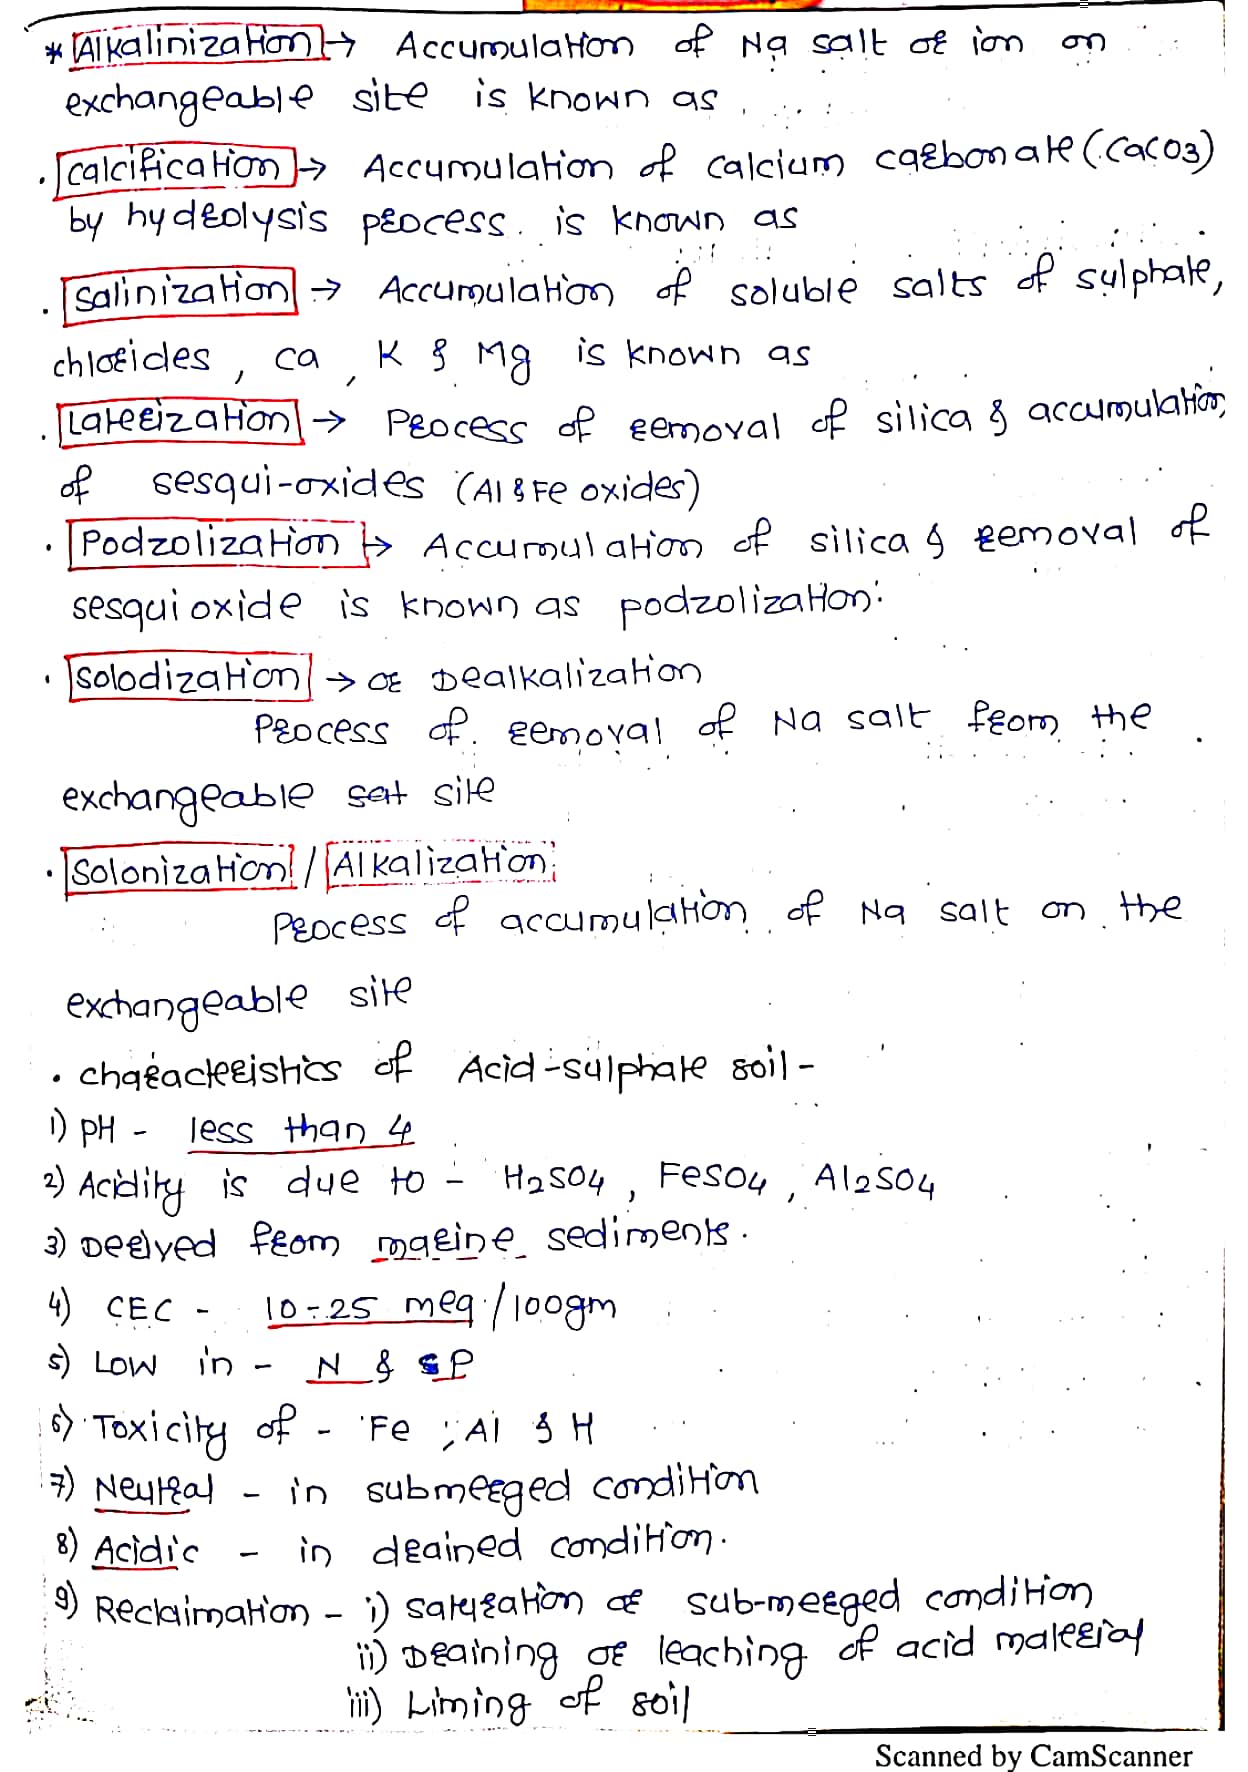 * Alkalinization → Accumulation of Na salt or ion on
exchangeable site is known as
. calcification → Accumulation of calcium carbonate (CaCO3)
by hydrolysis process. is known as
. Salinization → Accumulation of soluble salts of sulphate,
chlorides, ca, K & Mg is known as
. Laterization → Process of removal of silica & accumulation
of sesqui-oxides (Al & Fe oxides)
. Podzolization → Accumulation of silica & removal of
sesquioxide is known as podzolization.
. Solodization → or Dealkalization
Process of removal of Na salt from the
exchangeable site
. Solonization / Alkalization
Process of accumulation of Na salt on the
exchangeable site
. characteristics of Acid-sulphate soil -
1) pH - less than 4
2) Acidity is due to - H2SO4, FeSO4, Al2SO4
3) Derived from marine sediments.
4) CEC - 10-25 meq/100gm
5) Low in - N & P
6) Toxicity of - Fe, Al & H
7) Neutral - in submerged condition
8) Acidic - in drained condition.
9) Reclaimation - i) saturation or sub-merged condition
ii) Draining or leaching of acid material
iii) Liming of soil
Scanned by CamScanner